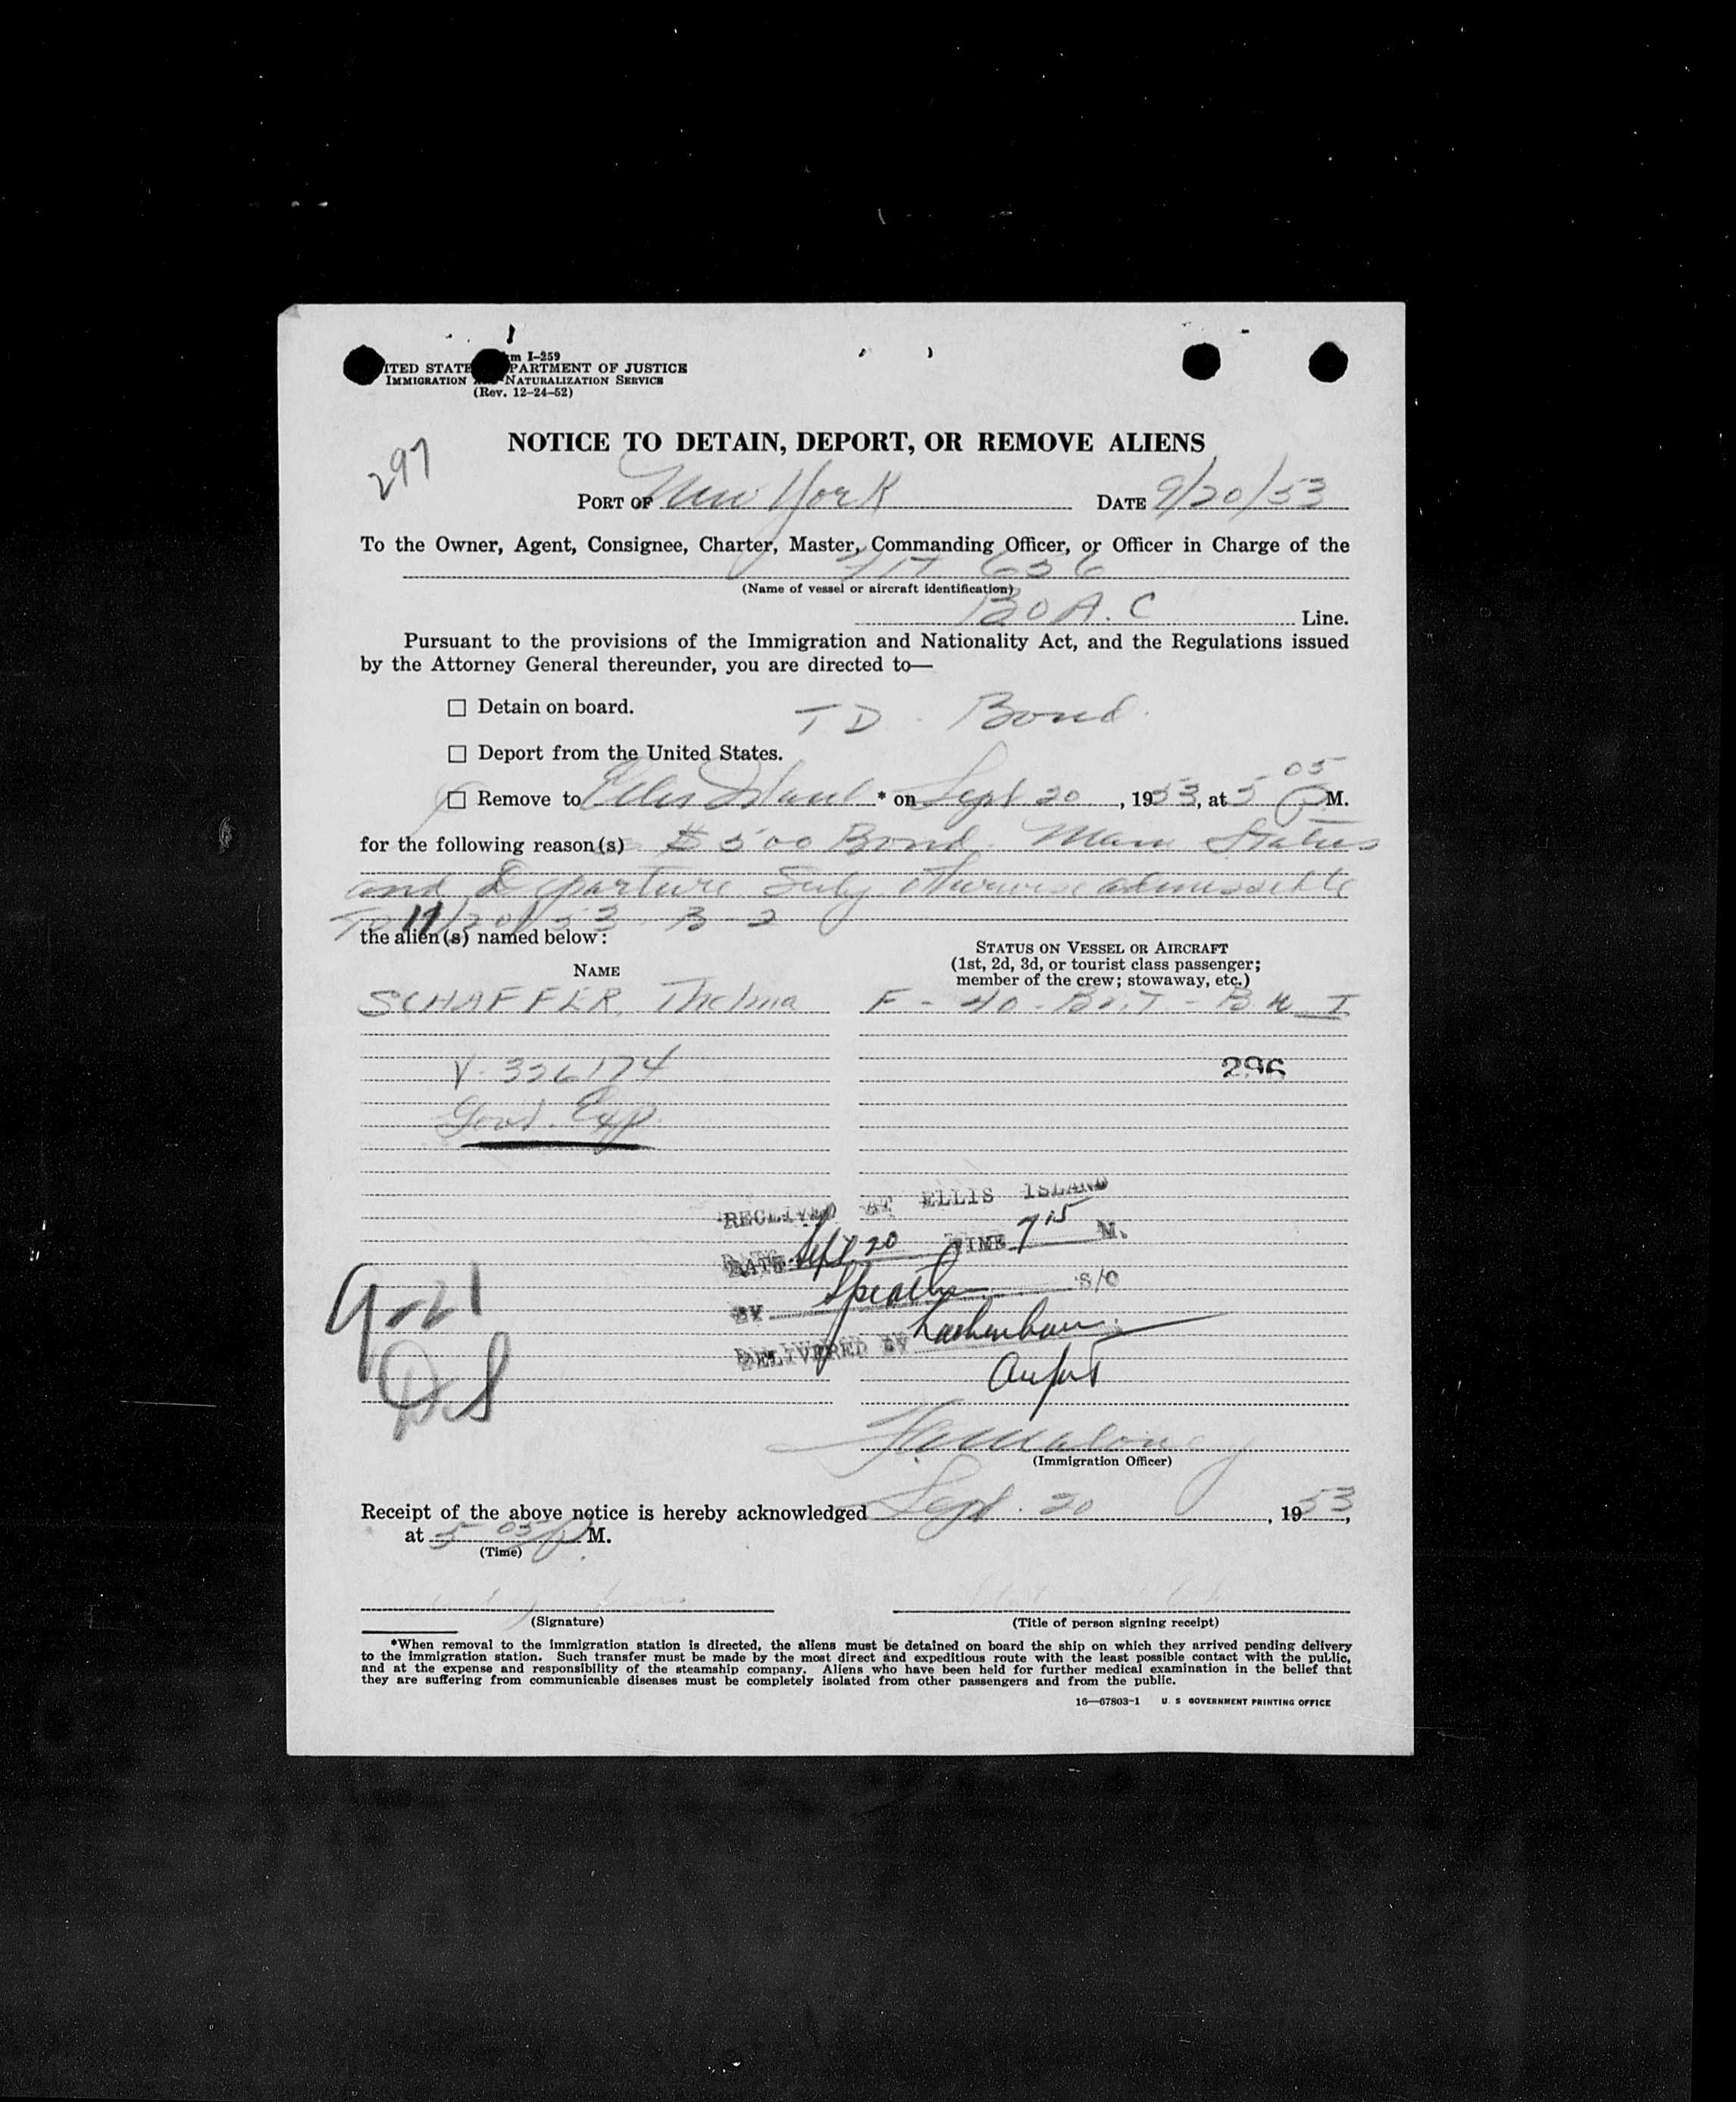 m I-259
ITED STATE PARTMENT OF JUSTICE
IMMIGRATION NATURALIZATION SERVICE
(Rev. 12-24-52)
NOTICE TO DETAIN, DEPORT, OR REMOVE ALIENS
297
PORT OF New York DATE 9/20/53
To the Owner, Agent, Consignee, Charter, Master, Commanding Officer, or Officer in Charge of the
(Name of vessel or aircraft identification)
B O A. C Line.
Pursuant to the provisions of the Immigration and Nationality Act, and the Regulations issued
by the Attorney General thereunder, you are directed to—
☐ Detain on board.
T D. Bond.
☐ Deport from the United States.
☐ Remove to Ellis Island * on Sept 20, 1953, at 5 05 P M.
for the following reason(s) $500 Bond. Main Status
and Departure. otherwise admissible
To 11/20/53 B-2
the alien(s) named below:
NAME
STATUS ON VESSEL OR AIRCRAFT
(1st, 2d, 3d, or tourist class passenger;
member of the crew; stowaway, etc.)
SCHAFFER, Thelma F - 40 - Brit -
V-326174
296
Govt. Exp.
RECEIVED AT ELLIS ISLAND
DATE Sept 20 TIME 7 15 M.
BY S/O
DELIVERED BY
Govt
DS
(Immigration Officer)
Receipt of the above notice is hereby acknowledged Sept. 20, 1953,
at 5 05 P M.
(Time)
(Signature)
(Title of person signing receipt)
*When removal to the immigration station is directed, the aliens must be detained on board the ship on which they arrived pending delivery
to the immigration station. Such transfer must be made by the most direct and expeditious route with the least possible contact with the public,
and at the expense and responsibility of the steamship company. Aliens who have been held for further medical examination in the belief that
they are suffering from communicable diseases must be completely isolated from other passengers and from the public.
16—67803-1 U. S GOVERNMENT PRINTING OFFICE